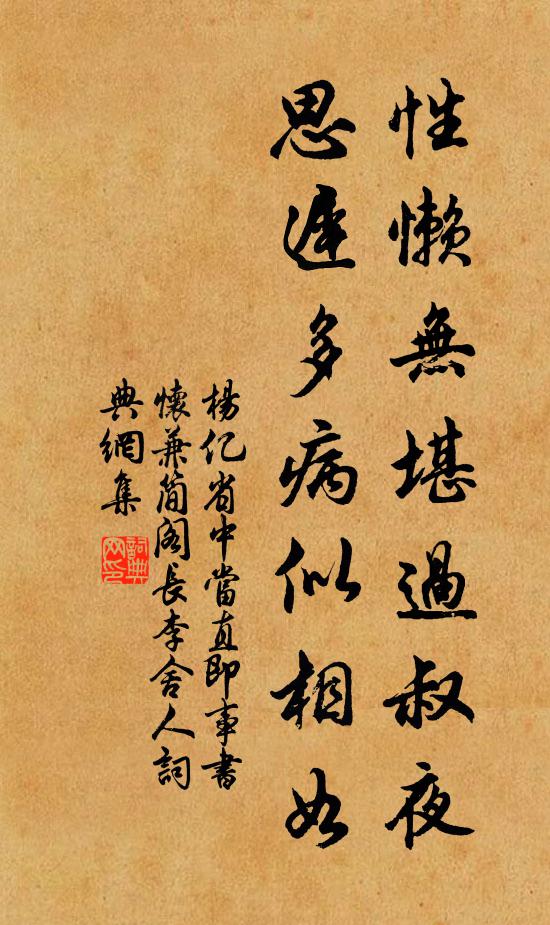 性懶無堪過叔夜
思遲多病似相如
楊亿省中當直即事書
懷兼簡閣長李舍人詞
典網集
詞典網印